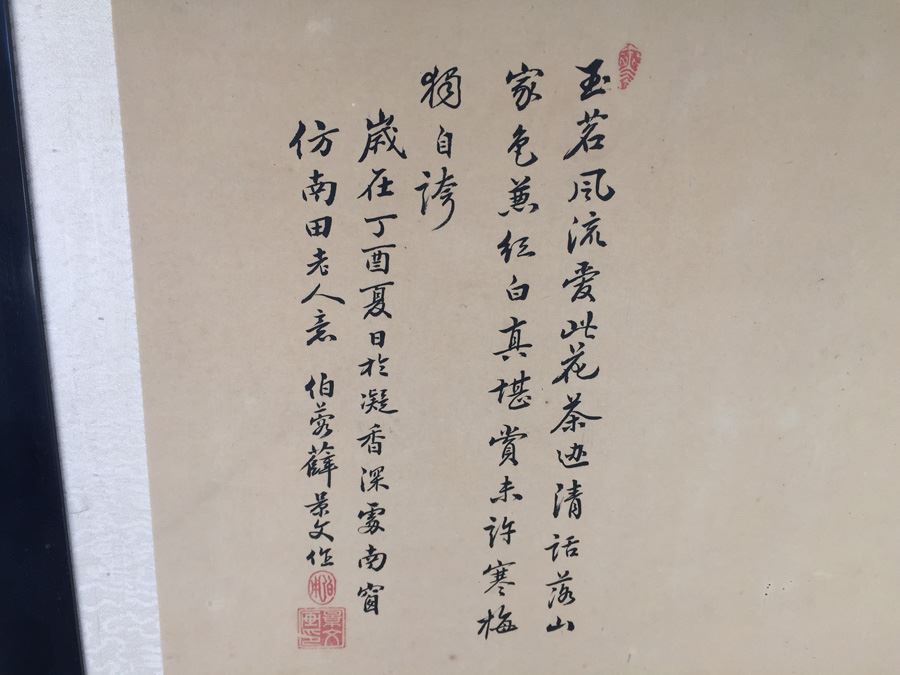 玉茗風流愛此花茶邊清話落山
家色兼紅白真堪賞未許寒梅
獨自誇
歲在丁酉夏日於凝香深處南窗
仿南田老人意 伯蓉薛景文作